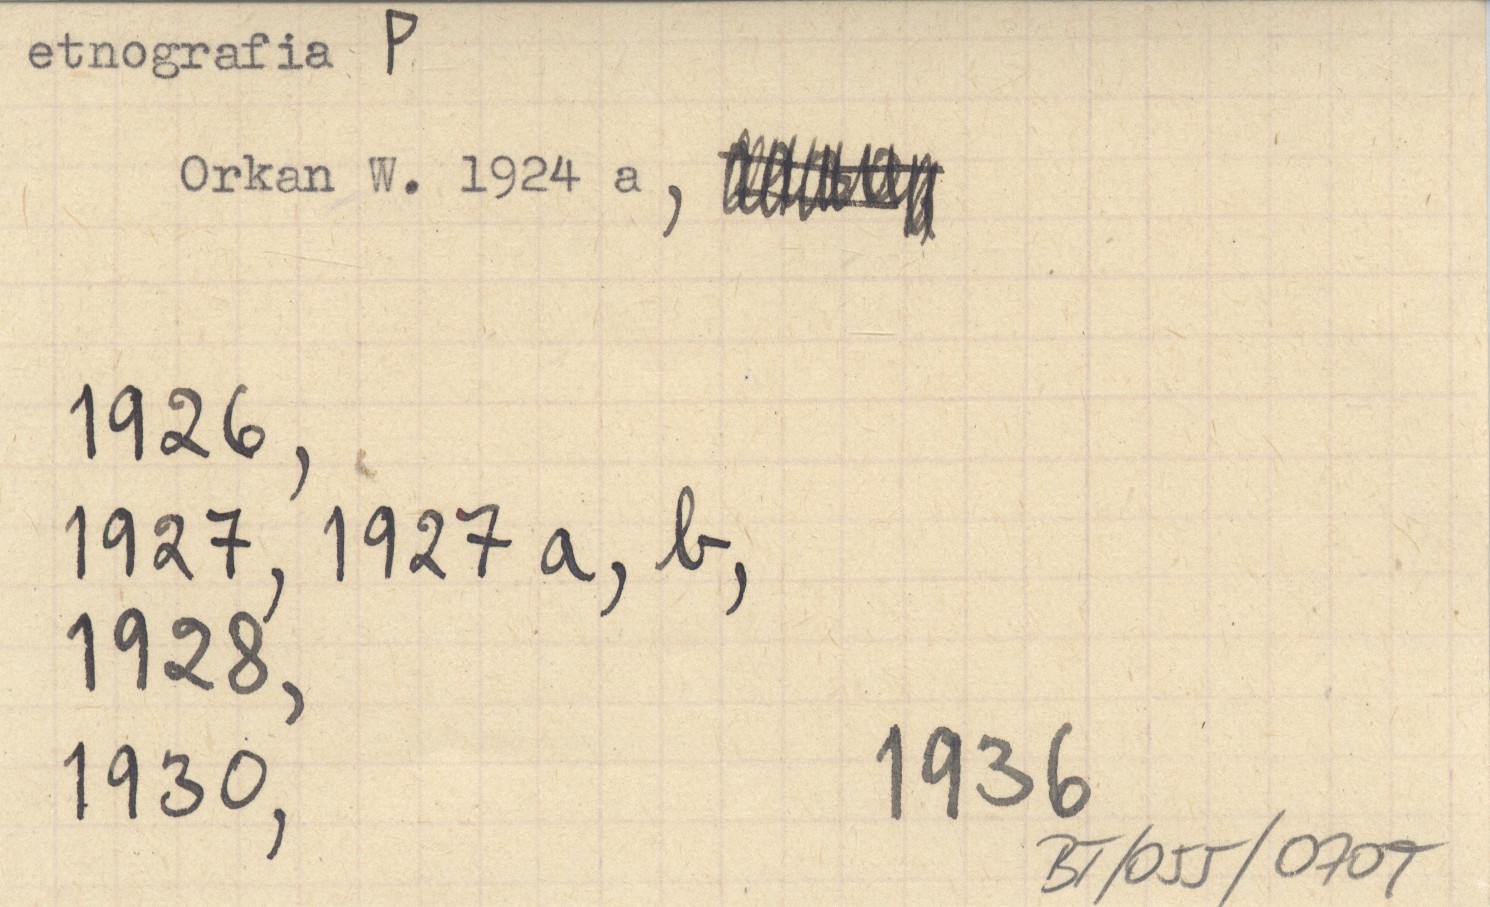 etnografia P
Orkan W. 1924 a,
1926,
1927, 1927 a, b,
1928,
1930, 1936
BT/055/0707